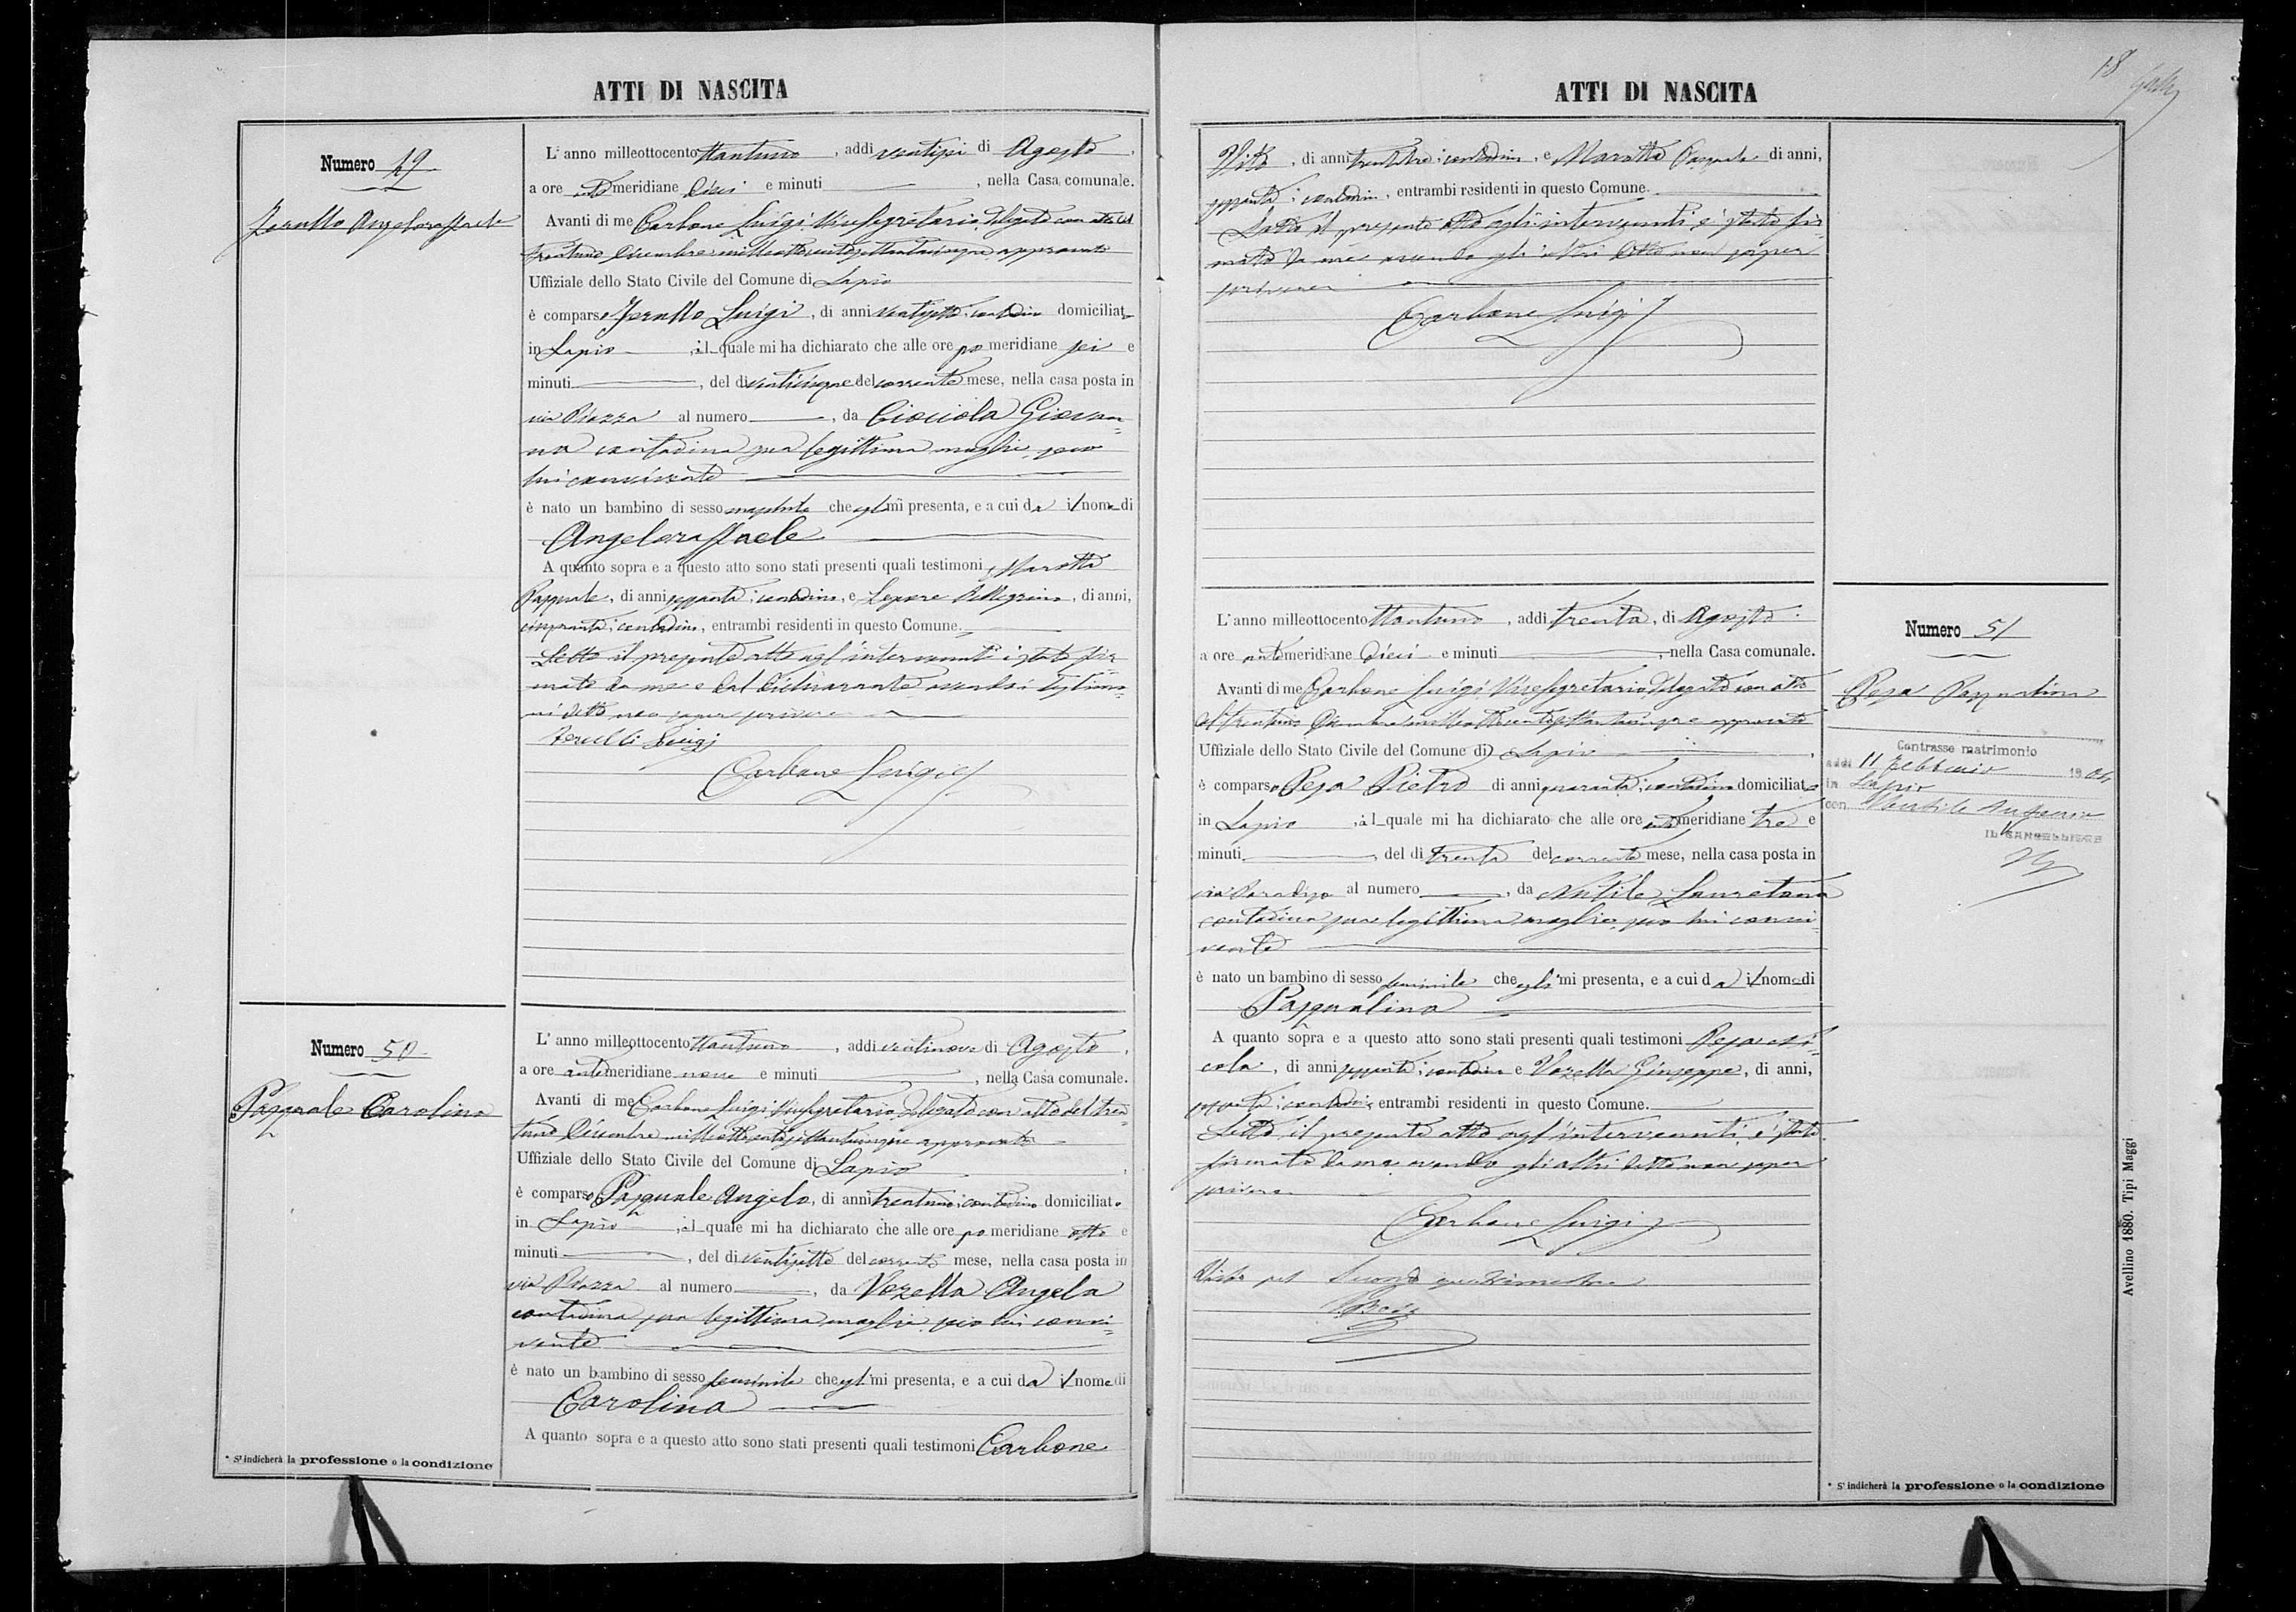 ATTI DI NASCITA
Numero 49
Jerullo Angeloraffaele
L'anno milleottocento ttantuno, addi ventisei di Agosto,
a ore ante meridiane dieci e minuti , nella Casa comunale.
Avanti di me Carbone Luigi Vicesegretario delegato con atto del
trentuno Dicembre milleottocentosettantacinque approvato
Uffiziale dello Stato Civile del Comune di Lapio
è comparso Jerullo Luigi, di anni ventisette contadino domiciliato
in Lapio, il quale mi ha dichiarato che alle ore po meridiane sei e
minuti , del dì venticinque del corrente mese, nella casa posta in
via Piazza al numero , da Ciociola Giovan=
na contadina sua legittima moglie, seco
lui convivente
è nato un bambino di sesso maschile che egli mi presenta, e a cui da il nome di
Angeloraffaele
A quanto sopra e a questo atto sono stati presenti quali testimoni Marotta
Pasquale, di anni sessanta, contadino, e Lepore Pellegrino, di anni,
cinquanta, contadino, entrambi residenti in questo Comune.
Letto il presente atto agl'intervenuti è stato fir=
mato da me e dal dichiarante avendo i testimo=
ni detto non saper scrivere
Jerulli Luigi
Carbone Luigi
Numero 50
Pasquale Carolina
L'anno milleottocento ttantuno, addi ventinove di Agosto,
a ore ante meridiane nove e minuti , nella Casa comunale.
Avanti di me Carbone Luigi Vicesegretario delegato con atto del tren=
tuno Dicembre milleottocentosettantacinque approvato
Uffiziale dello Stato Civile del Comune di Lapio
è comparso Pasquale Angelo, di anni trentuno, contadino domiciliato
in Lapio, il quale mi ha dichiarato che alle ore po meridiane otto e
minuti , del dì ventisette del corrente mese, nella casa posta in
via Piazza al numero , da Vozella Angela
contadina sua legittima moglie seco lui convi=
vente
è nato un bambino di sesso femminile che egli mi presenta, e a cui da il nome di
Carolina
A quanto sopra e a questo atto sono stati presenti quali testimoni Carbone
* Si indicherà la professione o la condizione
18
ATTI DI NASCITA
Vito, di anni trentatre, contadino, e Marotta Pasquale di anni,
sessanta, contadino, entrambi residenti in questo Comune.
Letto il presente atto agli intervenuti è stato fir=
mato da me avendo gli altri detto non saper
scrivere
Carbone Luigi
L'anno milleottocento ttantuno, addi trenta, di Agosto
a ore ante meridiane dieci e minuti , nella Casa comunale.
Avanti di me Carbone Luigi Vicesegretario delegato con atto
del trentuno Dicembre milleottocentosettantacinque approvato
Uffiziale dello Stato Civile del Comune di Lapio
è comparso Pesa Pietro di anni quaranta, contadino domiciliato
in Lapio, il quale mi ha dichiarato che alle ore ante meridiane tre e
minuti , del dì trenta del corrente mese, nella casa posta in
via Paradiso al numero , da Nutile Lauretana
contadina sua legittima moglie, seco lui convi=
vente
è nato un bambino di sesso femminile che egli mi presenta, e a cui da il nome di
Pasqualina
A quanto sopra e a questo atto sono stati presenti quali testimoni Pesa Ni=
cola, di anni sessanta, contadino e Vozella Giuseppe, di anni,
contadini, entrambi residenti in questo Comune.
Letto il presente atto agl'intervenuti, è stato
firmato da me avendo gli altri detto non saper
scrivere
Carbone Luigi
Visto pel secondo quadrimestre
Numero 51
Pesa Pasqualina
Contrasse matrimonio
addì 11 Febbraio 1904
in Lapio
con
IL CANCELLIERE
* Si indicherà la professione o la condizione
Avellino 1880. Tipi Maggi